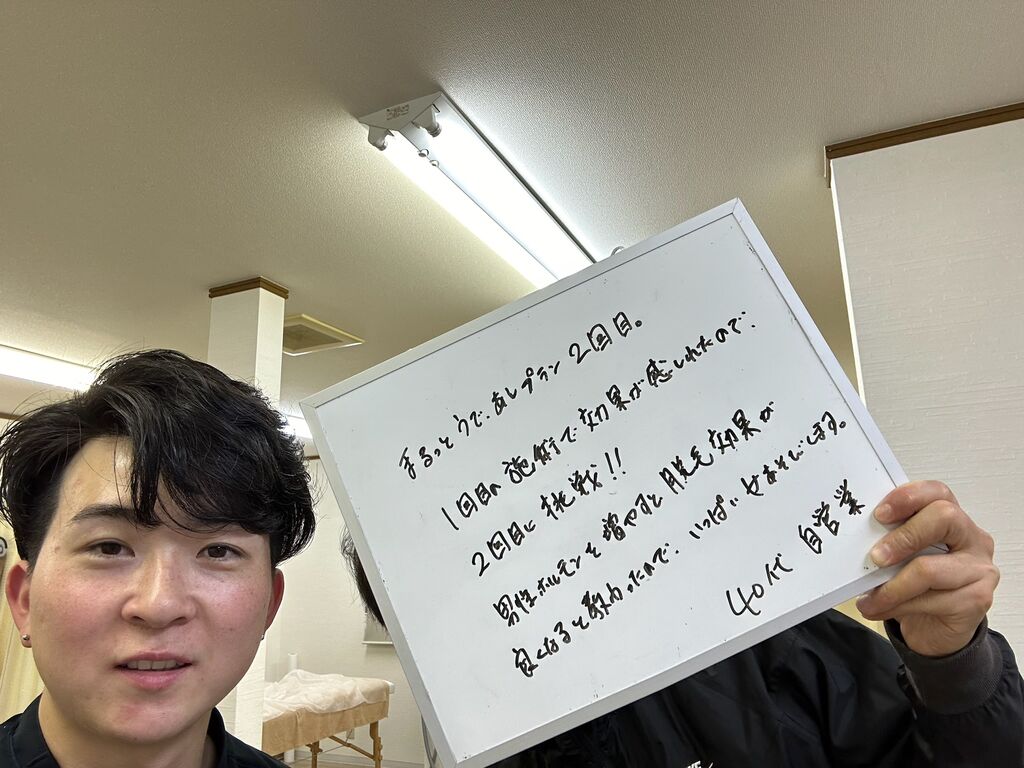 まるっとうで、あしプラン2回目。
1回目の施術で効果が感じれたので、
2回目に挑戦!!
男性ホルモンを増やすと脱毛効果が
良くなると教わったので、いっぱい女あそびします。
40代 自営業